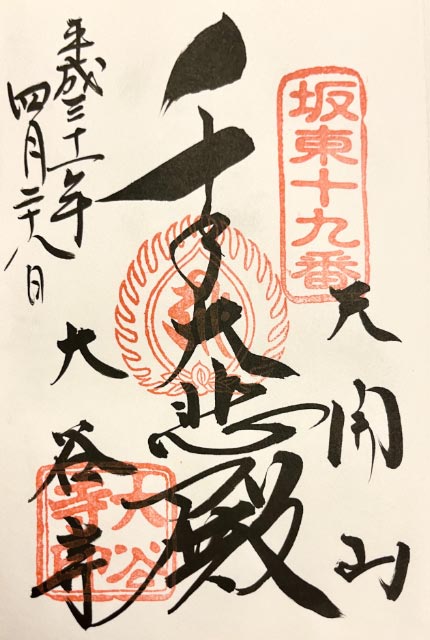 坂東十九番
天開山
千手大悲殿
平成三十一年
四月二十八日
大谷寺
大谷寺印